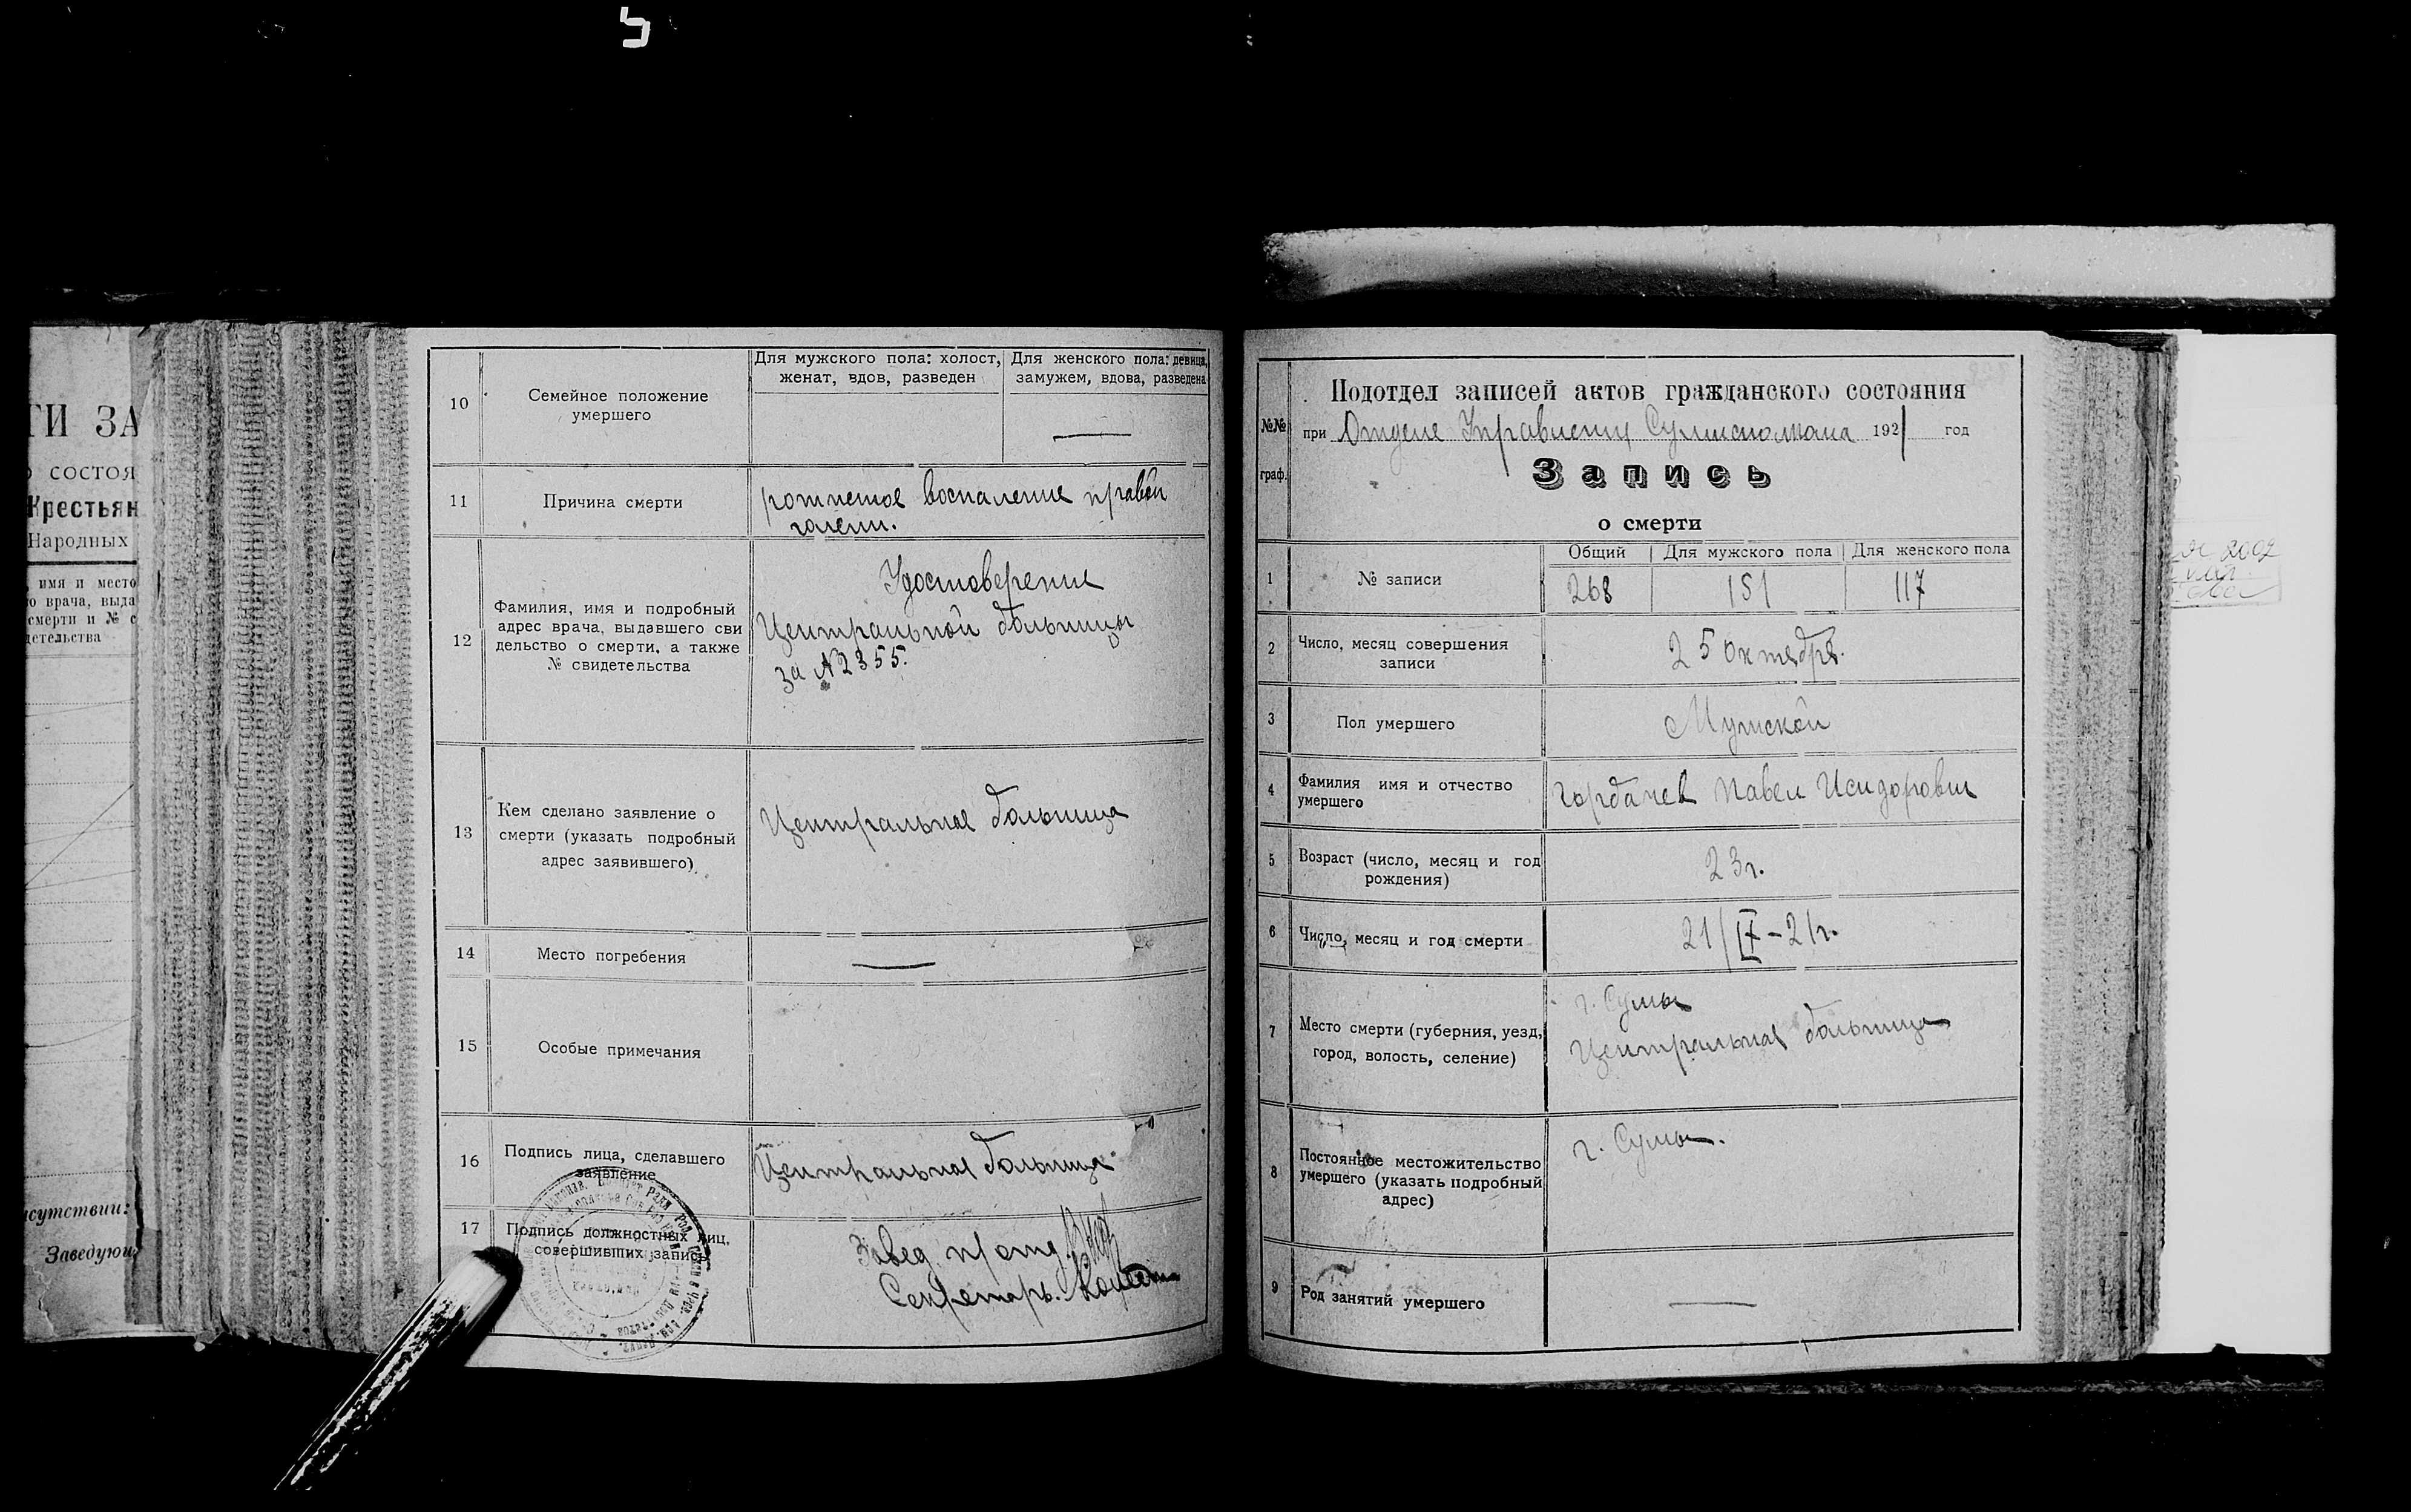 ТИ ЗА
О СОСТОЯ
Крестьян
Народных
имя и место
о врача, выда
смерти и № с
детельства
сутствии:
Заведующ
10
Семейное положение
умершего
Для мужского пола: холост,
женат, вдов, разведен
Для женского пола: девица,
замужем, вдова, разведена
11
Причина смерти
воспаление правой
голени.
12
Фамилия, имя и подробный
адрес врача, выдавшего сви
дельство о смерти, а также
№ свидетельства
Удостоверение
Центральной больницы
за №2355.
13
Кем сделано заявление о
смерти (указать подробный
адрес заявившего)
Центральная больница
14
Место погребения
15
Особые примечания
16
Подпись лица, сделавшего
заявление
Центральная больница
17
Подпись должностных лиц,
совершивших запись
Завед. п/отд.
Секретарь.
№№
граф.
Подотдел записей актов гражданского состояния
при Отделе Управления Сумисполкома 1921 год
Запись
о смерти
1
№ записи
Общий
Для мужского пола
Для женского пола
268
151
117
2
Число, месяц совершения
записи
25 октября.
3
Пол умершего
Мужской
4
Фамилия имя и отчество
умершего
Горбачев Павел Исидорович
5
Возраст (число, месяц и год
рождения)
23г.
6
Число, месяц и год смерти
21/IX-21г.
7
Место смерти (губерния, уезд,
город, волость, селение)
г. Сумы
Центральная больница
8
Постоянное местожительство
умершего (указать подробный
адрес)
г. Сумы.
9
Род занятий умершего